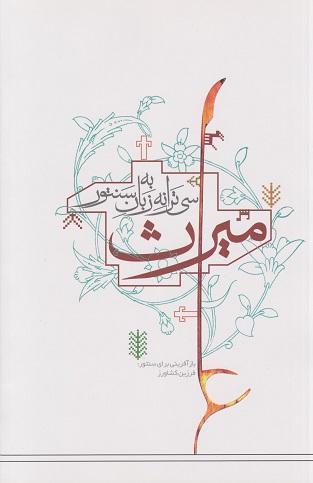 سی ترانه به زبان سنتور
میراث
بازآفرینی برای سنتور:
فرزین کشاورز